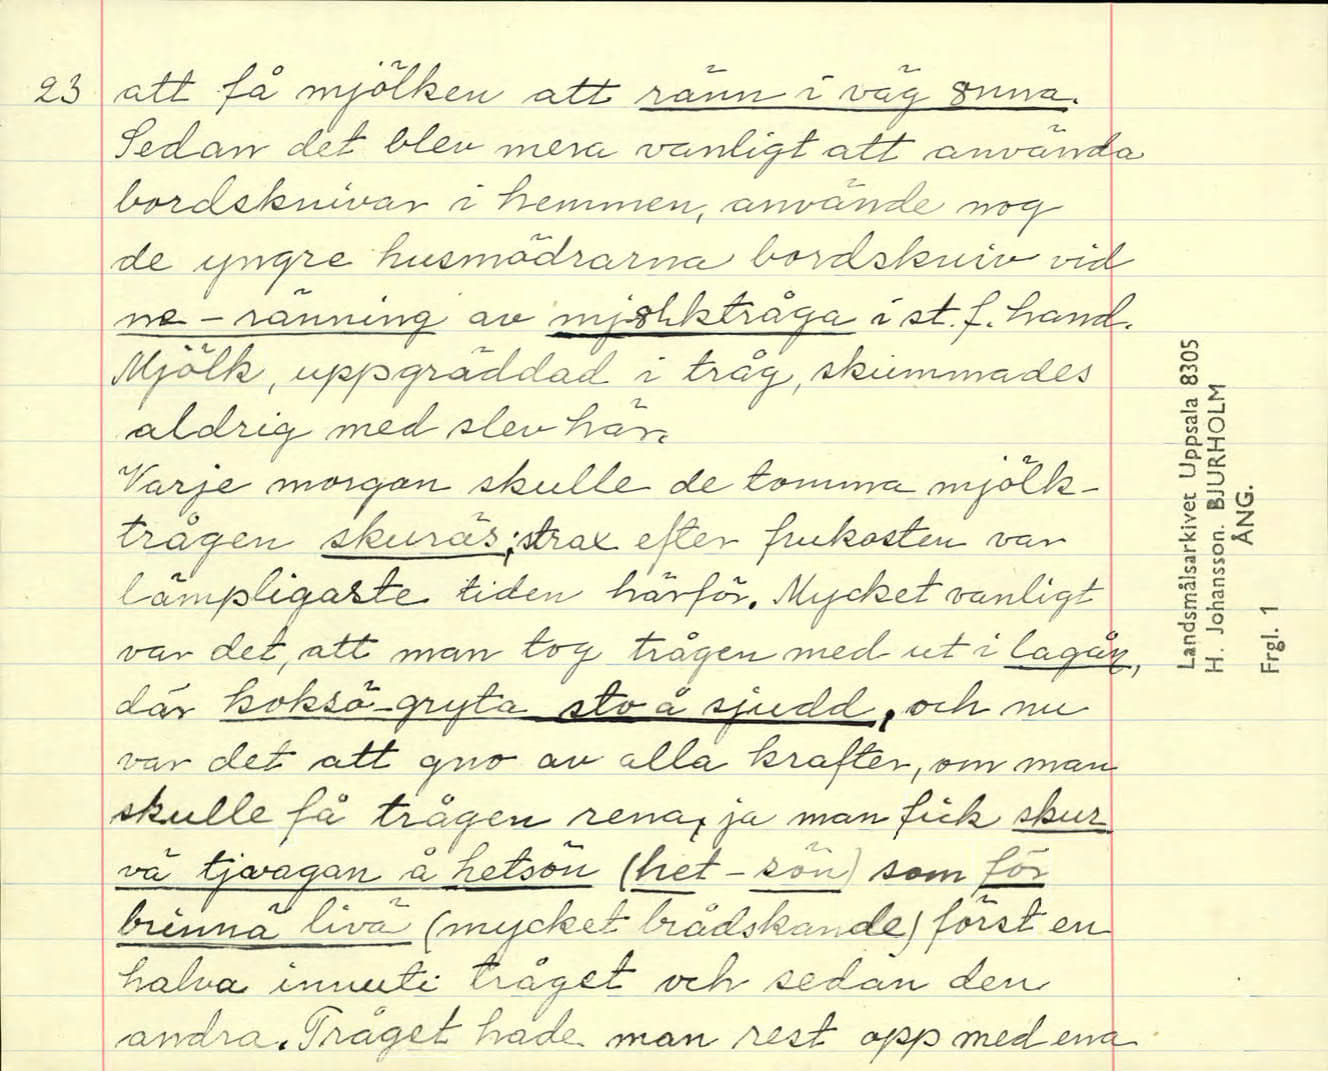 23 att få mjölken att ränn i väg 8nna.
Sedan det blev mera vanligt att använda
bordsknivar i hemmen, använde nog
de yngre husmödrarna bordskniv vid
ne-ränning av mj8lktråga i st. f. hand.
Mjölk, uppgräddad i tråg, skummades
aldrig med slev här.
Varje morgon skulle de tomma mjölk-
trågen skuräs; strax efter frukosten var
lämpligaste tiden härför. Mycket vanligt
var det, att man tog trågen med ut i lagåɳ,
där koksä-gryta sto å sjudd, och nu
var det att gno av alla krafter, om man
skulle få trågen rena, ja man fick skur
vä tjvagan å hetsön (het-sön) som för
brinnä livä (mycket brådskande) först en
halva innuti tråget och sedan den
andra. Tråget hade man rest opp med ena
Landsmålsarkivet Uppsala 8305
H. Johansson. BJURHOLM
ÅNG.
Frgl. 1